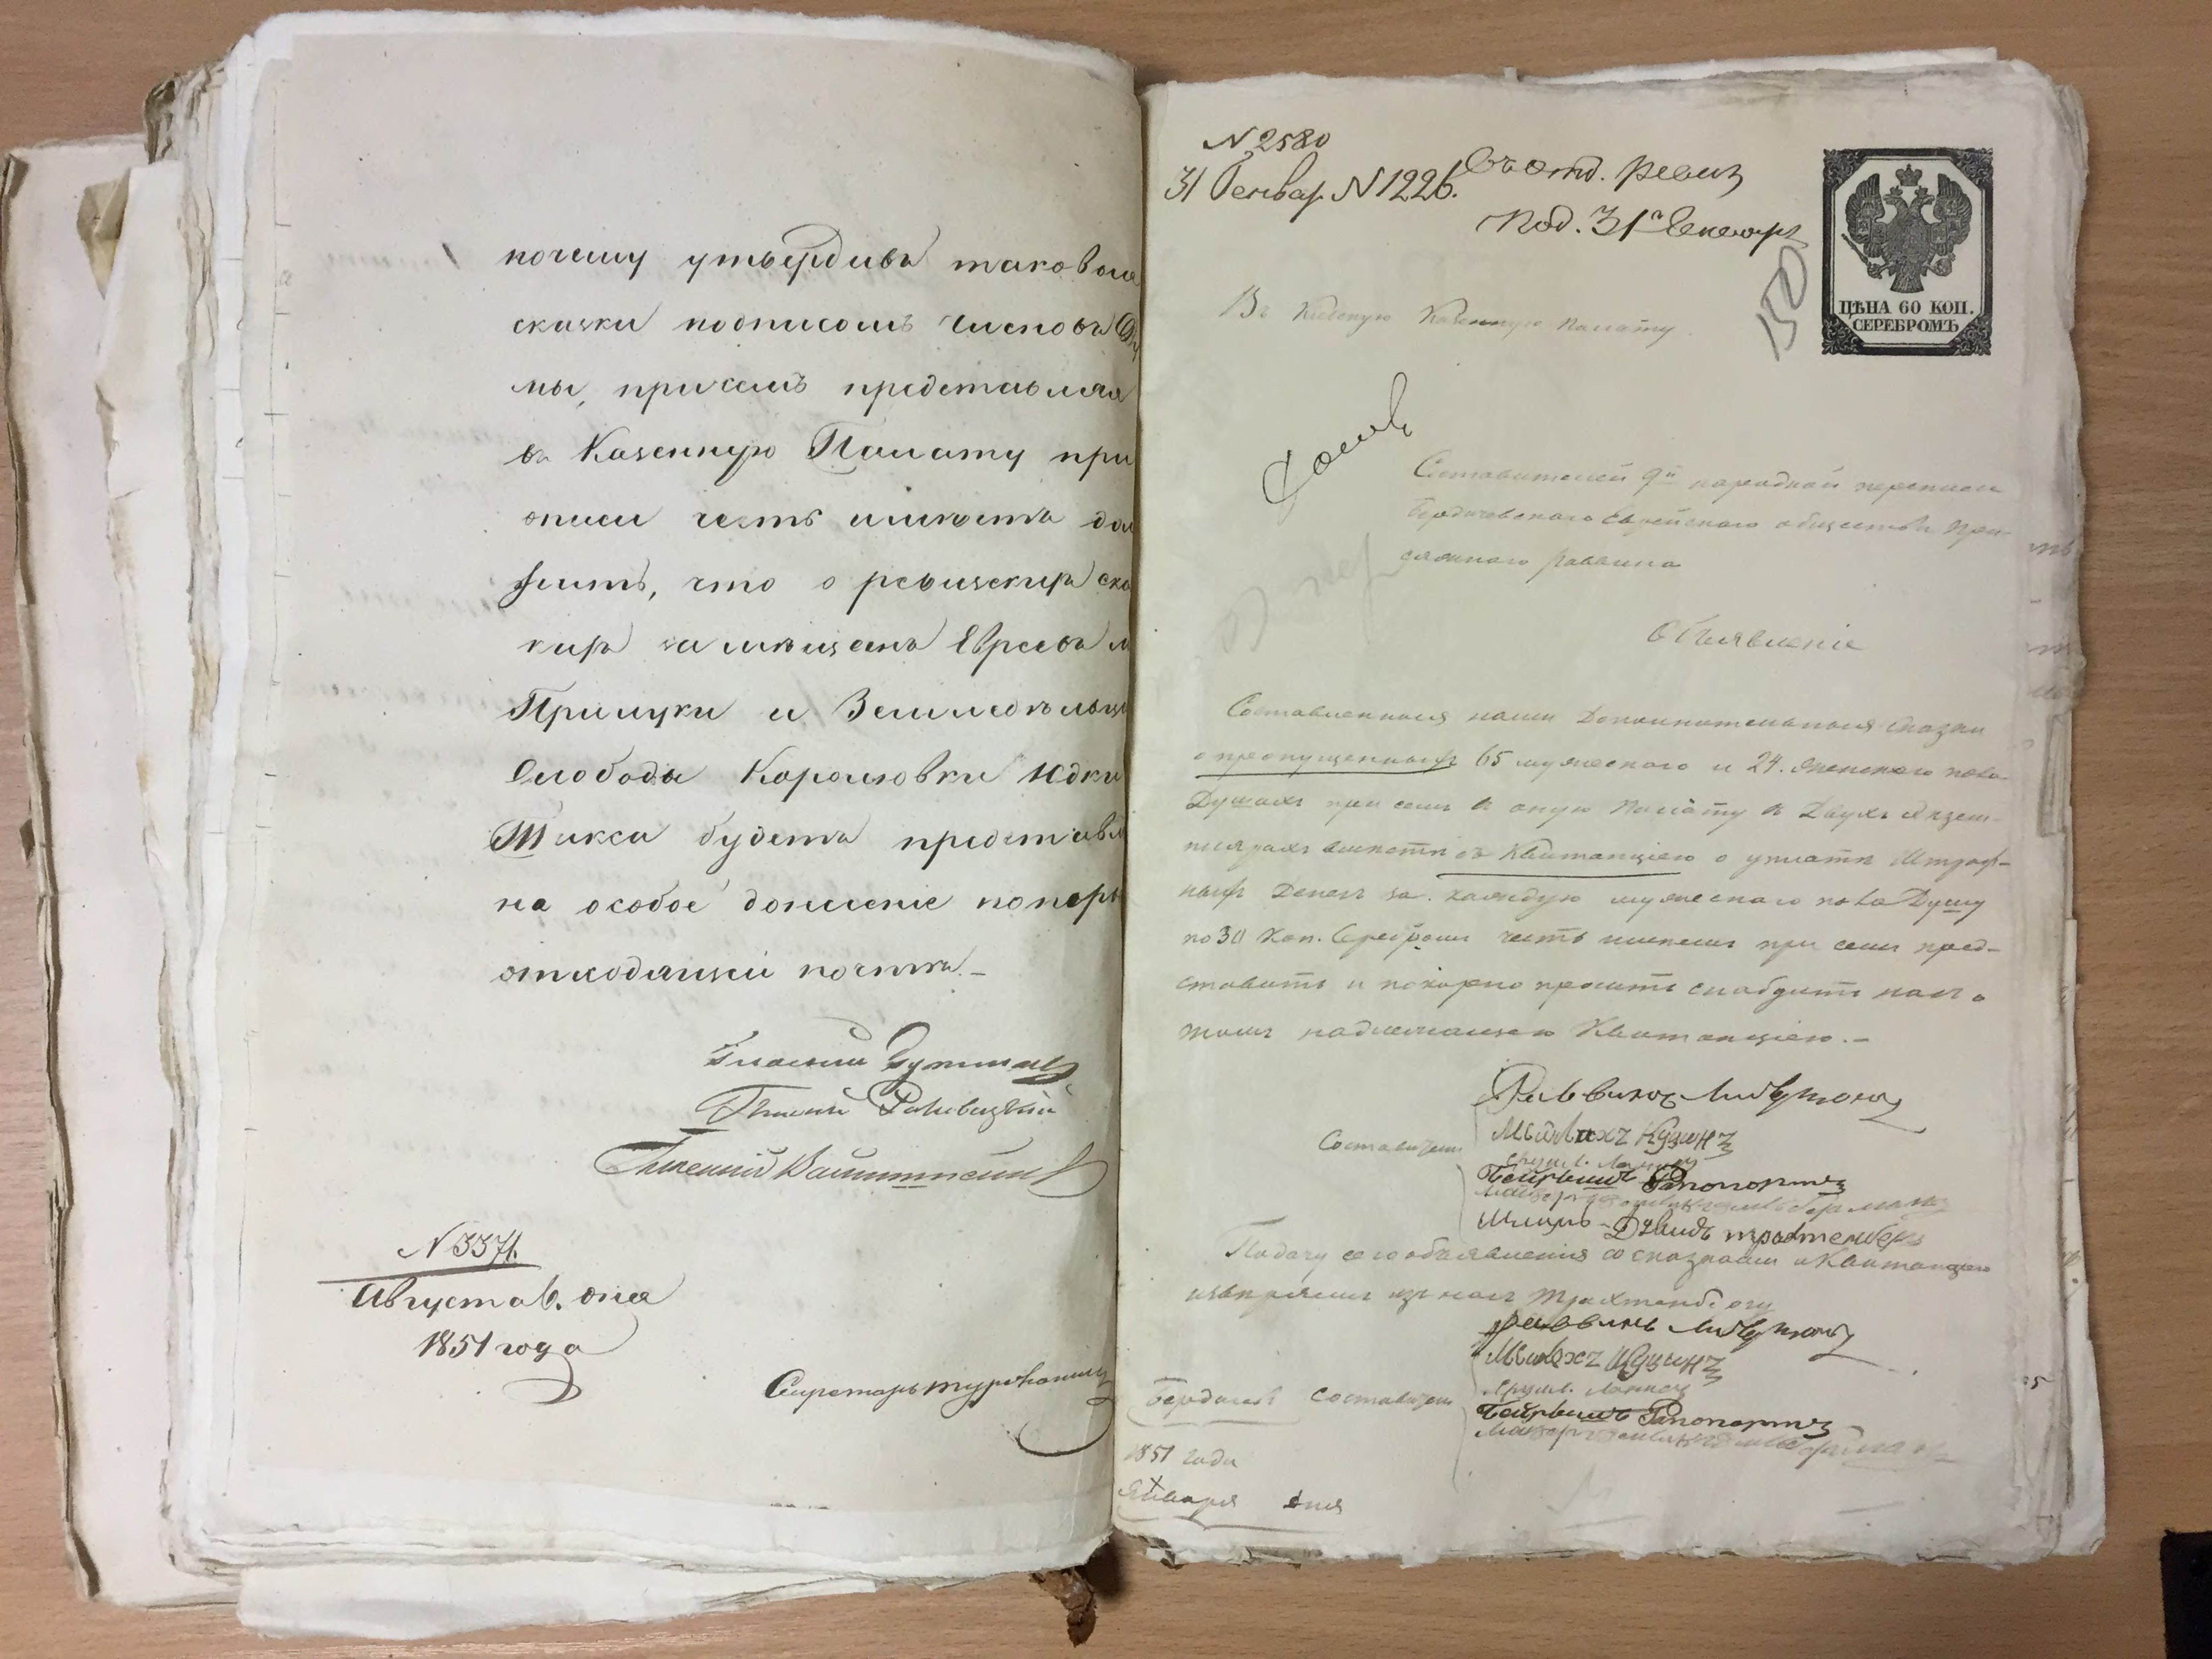 почему утвердивъ таковыя
сказки подписомъ членовъ Ду
мы, причемъ представляя
въ Казенную Палату при
описи честь имѣетъ до
жить, что о ревизскихъ ска
кахъ за мѣщанъ Евреевъ м
Прилуки и Земледѣльц
Слободы Королювки Юдки
Шикси будетъ представл
на особое донесеніе по перв
отходящей почтѣ. —
Гласный
Гласный
Гласный
N 3371.
Августа 6. дня
1851 года
Секретарь
N 2580
31 Генвар. N 1226.
Въ отд. ревиз
Под. 31го Генваря
150
ЦѢНА 60 КОП.
СЕРЕБРОМЪ
Въ Кіевскую Казенную Палату.
Составителей 9й народной переписи
Бердичевскаго Еврейскаго общества и При-
сяжнаго раввина
Объявленіе
Составленныя нами Дополнительныя Сказки
о пропущенныхъ 65 мужескаго и 24. женскаго пола
Душахъ при семъ въ оную Палату въ Двухъ Экзем-
плярахъ вмѣстѣ съ Квитанціею о уплатѣ Штраф-
ныхъ Денегъ за каждую мужескаго пола Душу
по 30 коп. Серебромъ честь имѣемъ при семъ пред-
ставить и покорно просить снабдить насъ о
томъ надлежащею Квитанціею. —
Раввинъ
Составители
Мейлахъ
Бейрышъ Рапопортъ
Шлиомъ-Давидъ Трахтенберъ
Подачу сего объявленія со сказками и Квитанціею
ввѣряемъ изъ насъ Трахтенбергу
Раввинъ
Мейлехъ
Бердичевъ Составители
Бейрышъ Рапопортъ
1851 года
Января дня